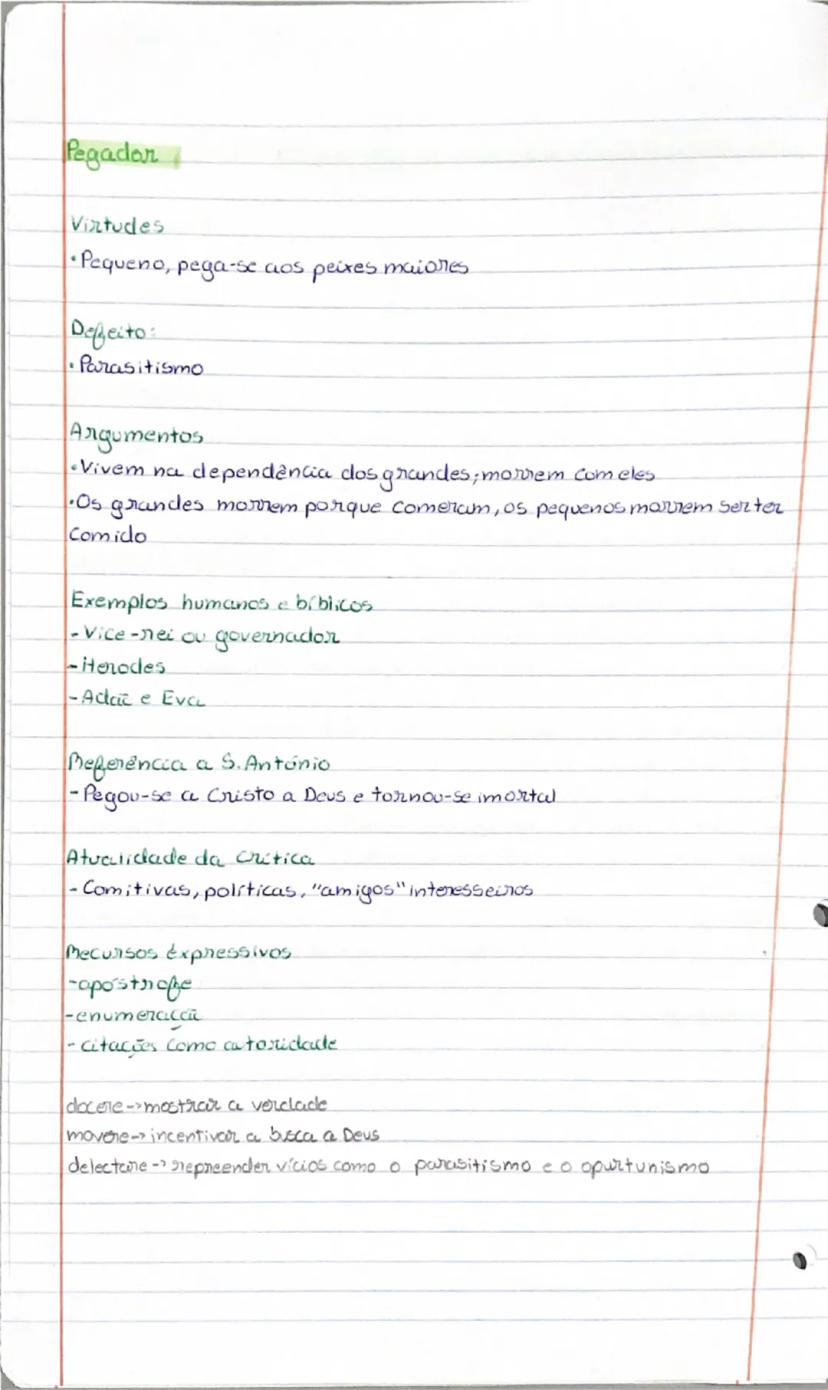 Pegador
Virtudes
• Pequeno, pega-se aos peixes maiores
Defeito:
• Parasitismo
Argumentos
• Vivem na dependência dos grandes; morrem com eles
• Os grandes morrem porque comeram, os pequenos morrem ser ter
comido
Exemplos humanos e bíblicos
- Vice-rei ou governador
- Herodes
- Adão e Eva
Referência a S. António
- Pegou-se a Cristo a Deus e tornou-se imortal
Atualidade da crítica
- Comitivas, políticas, "amigos" interesseiros
Recursos éxpressivos
- apóstrofe
- enumeração
- citações como autoridade
docere -> mostrar a verdade
movere -> incentivar a busca a Deus
delectare -> repreender vícios como o parasitismo e o opurtunismo